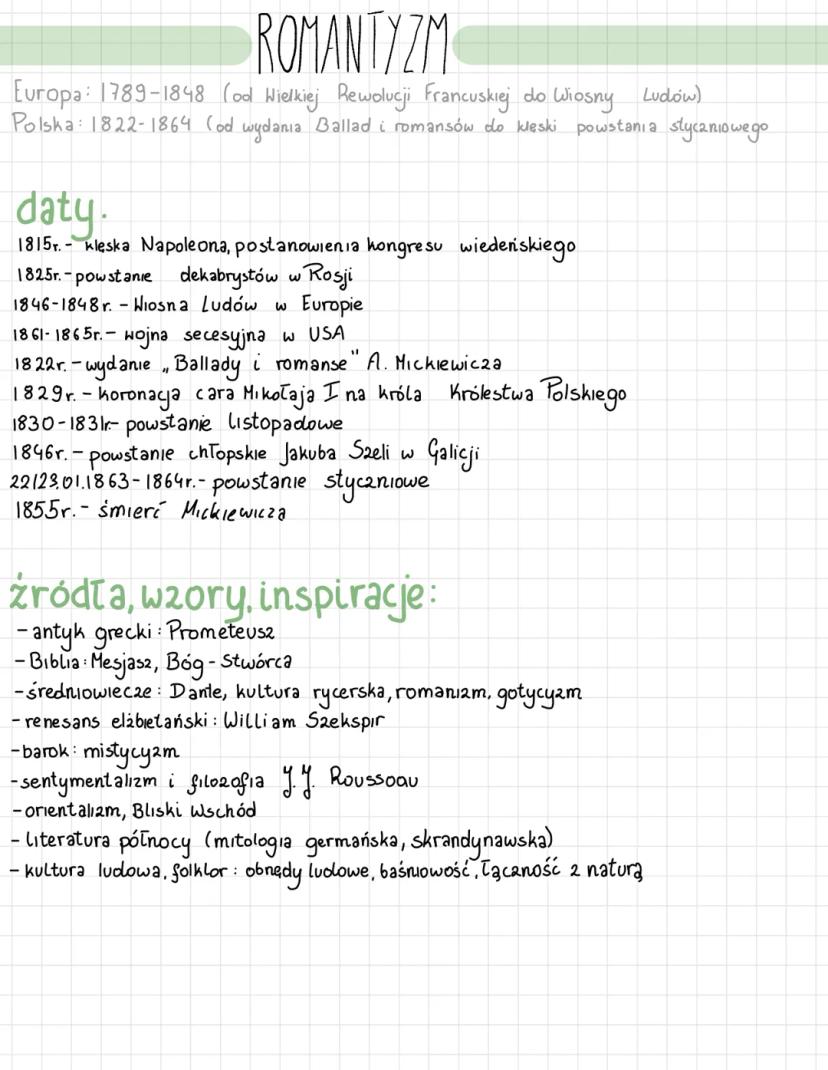 ROMANTYZM
Europa: 1789-1848 (od Wielkiej Rewolucji Francuskiej do Wiosny Ludów)
Polska: 1822-1864 (od wydania Ballad i romansów do klęski powstania styczniowego
daty.
1815r. - klęska Napoleona, postanowienia kongresu wiedeńskiego
1825r. - powstanie dekabrystów w Rosji
1846-1848r. - Wiosna Ludów w Europie
1861-1865r. - wojna secesyjna w USA
1822r. - wydanie „Ballady i romanse" A. Mickiewicza
1829r. - koronacja cara Mikołaja I na króla Królestwa Polskiego
1830-1831r- powstanie listopadowe
1846r. - powstanie chłopskie Jakuba Szeli w Galicji
22/23.01.1863-1864r. - powstanie styczniowe
1855r. - śmierć Mickiewicza
źródła, wzory, inspiracje:
- antyk grecki: Prometeusz
- Biblia: Mesjasz, Bóg - Stwórca
- średniowiecze: Dante, kultura rycerska, romanizm, gotycyzm
- renesans elżbietański: William Szekspir
- barok: mistycyzm
- sentymentalizm i filozofia J.J. Roussoau
- orientalizm, Bliski Wschód
- literatura północy (mitologia germańska, skrandynawska)
- kultura ludowa, folklor: obrzędy ludowe, baśniowość, łączność z naturą